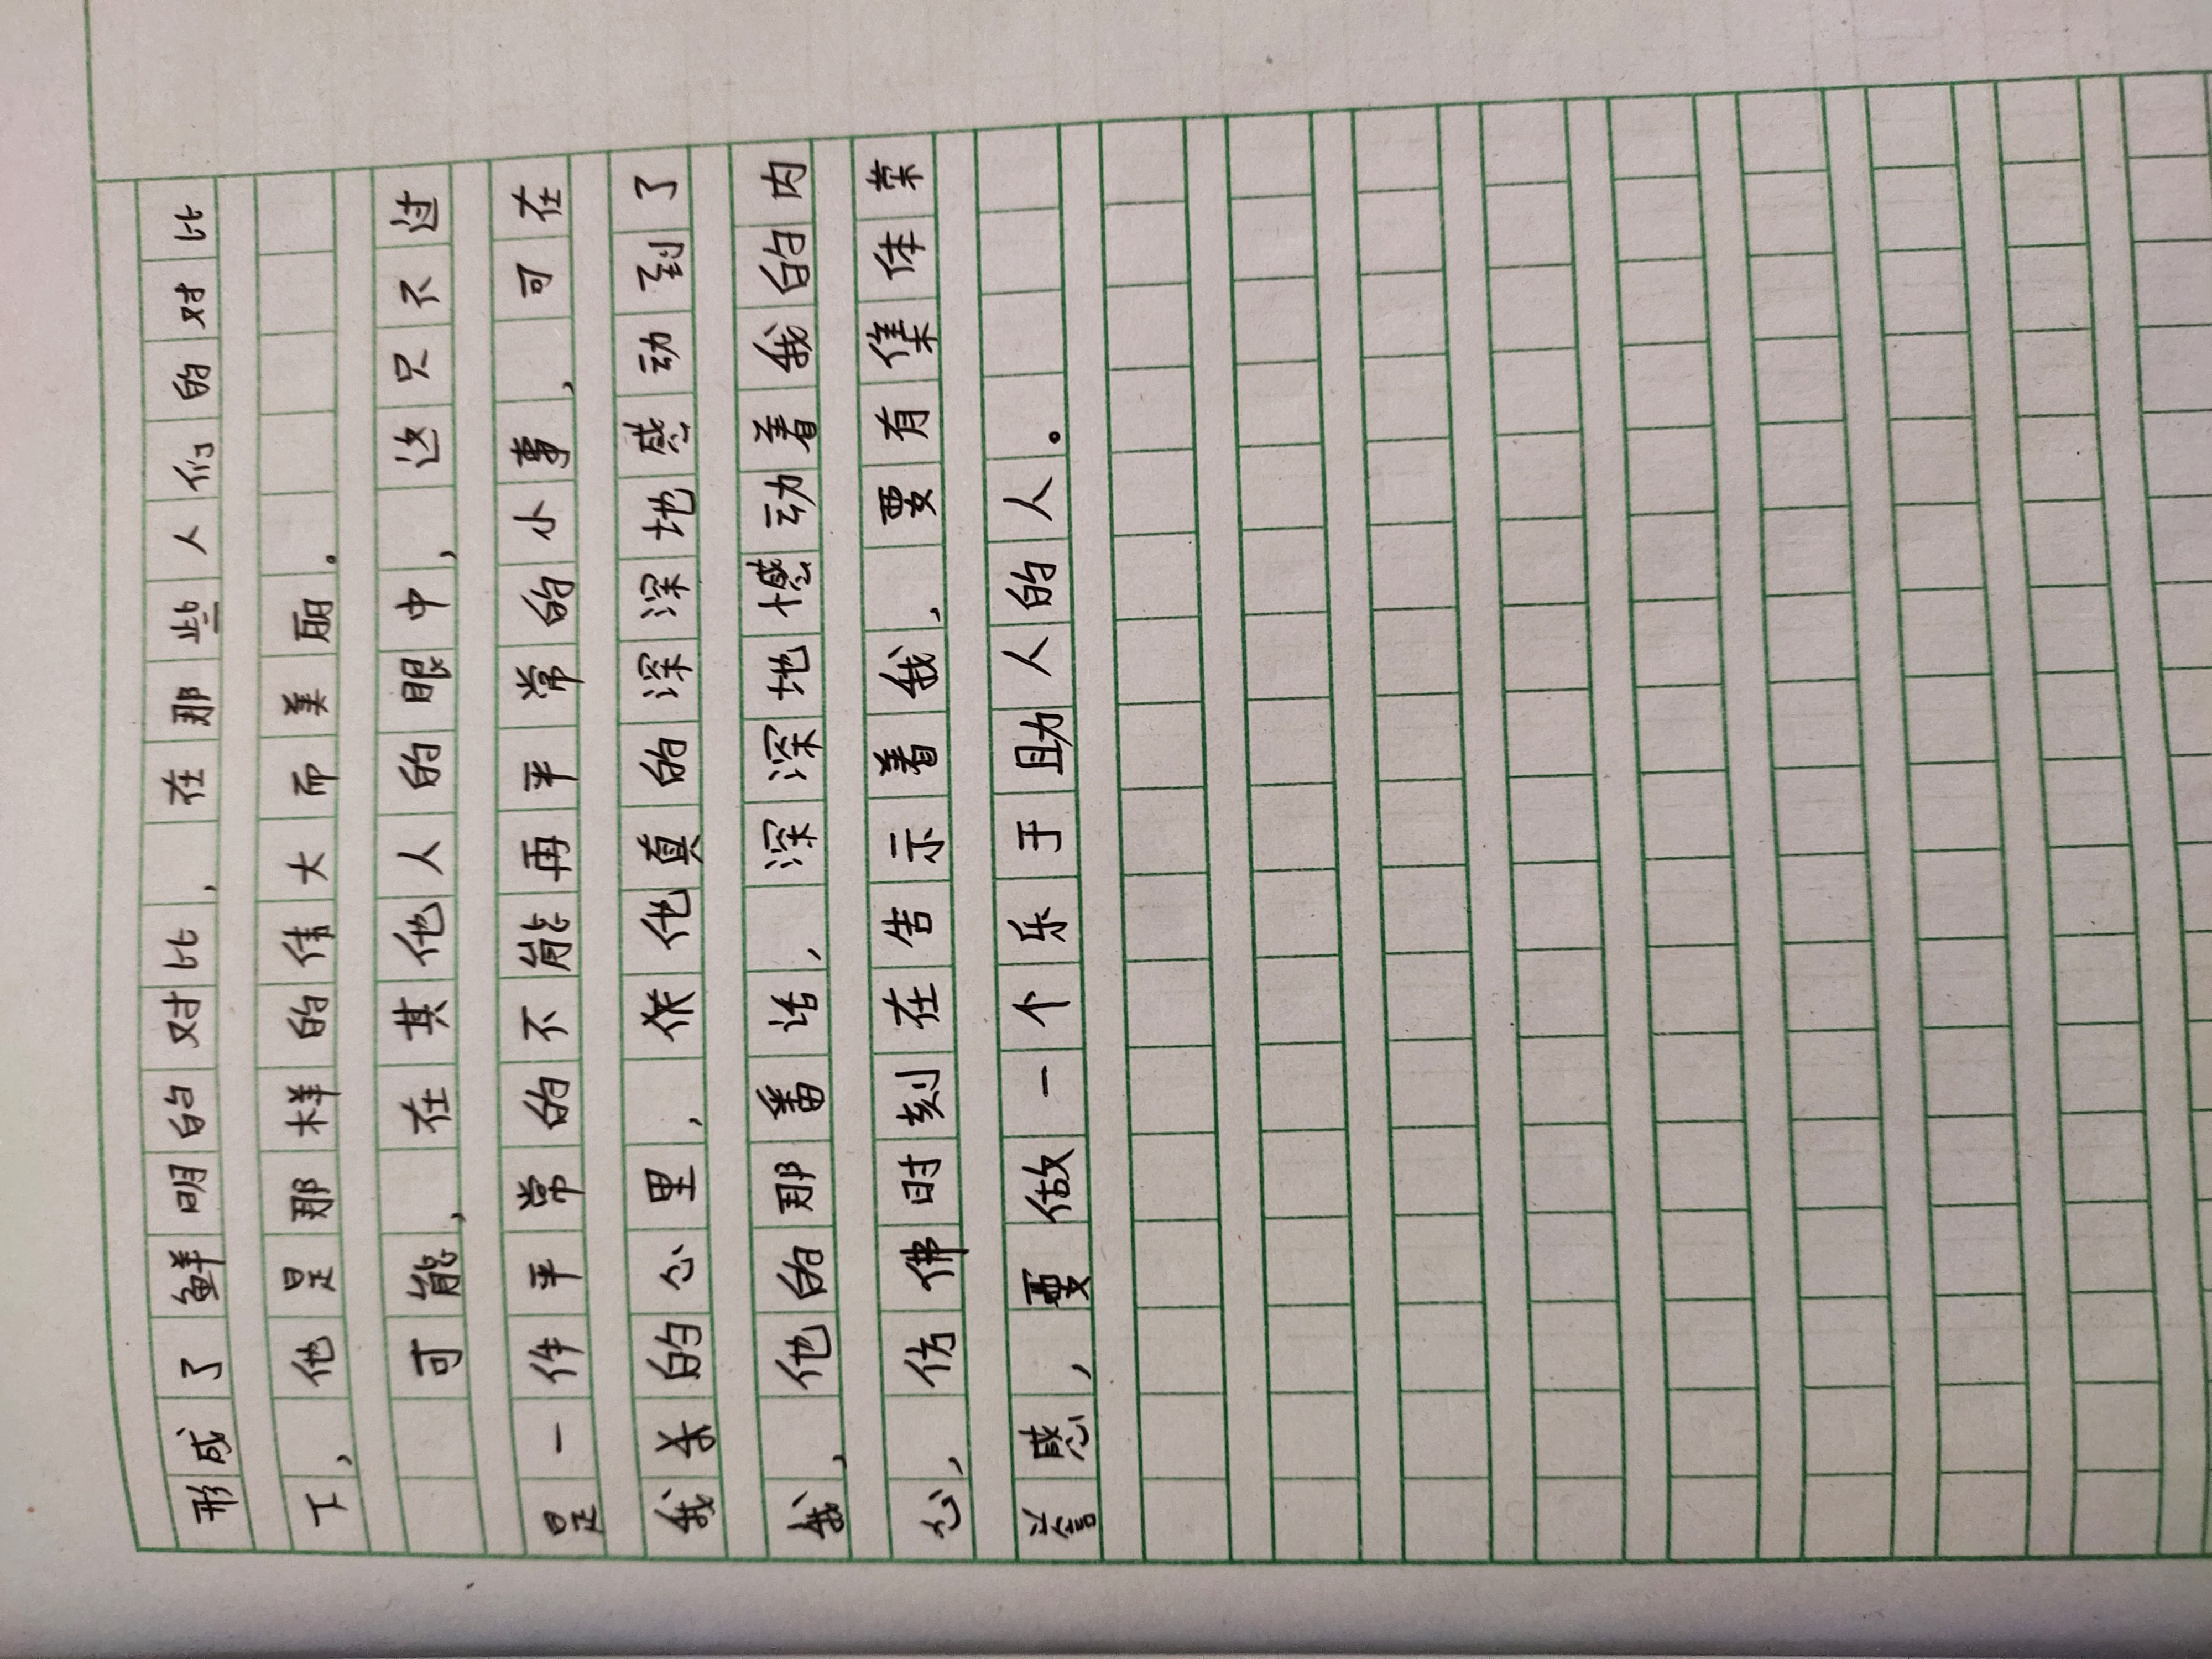 形成了鲜明的对比，在那些人们的对比
下，他是那样的伟大而美丽。
可能，在其他人的眼中，这只不过
是一件平常的不能再平常的小事，可在
我的心里，他真的深深地感动到了
我，他的那番话，深深地撼动着我的内
心，仿佛时刻在告示着我，要有集体荣
誉感，要做一个乐于助人的人。